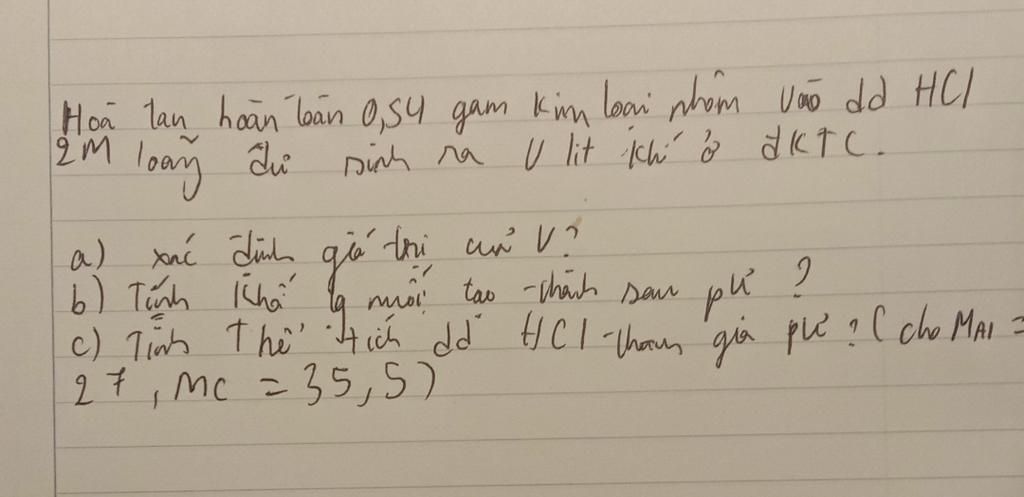 Hoà tan hoàn toàn 0,54 gam kim loại nhôm vào dd HCl
2M loãng dư sinh ra V lit khí ở đKTC.
a) xác định giá trị cuả V?
b) Tính khối lg muối tạo thành sau pứ ?
c) Tính Thể tích dd HCl tham gia pứ ? ( cho MAl =
27, MC = 35,5)